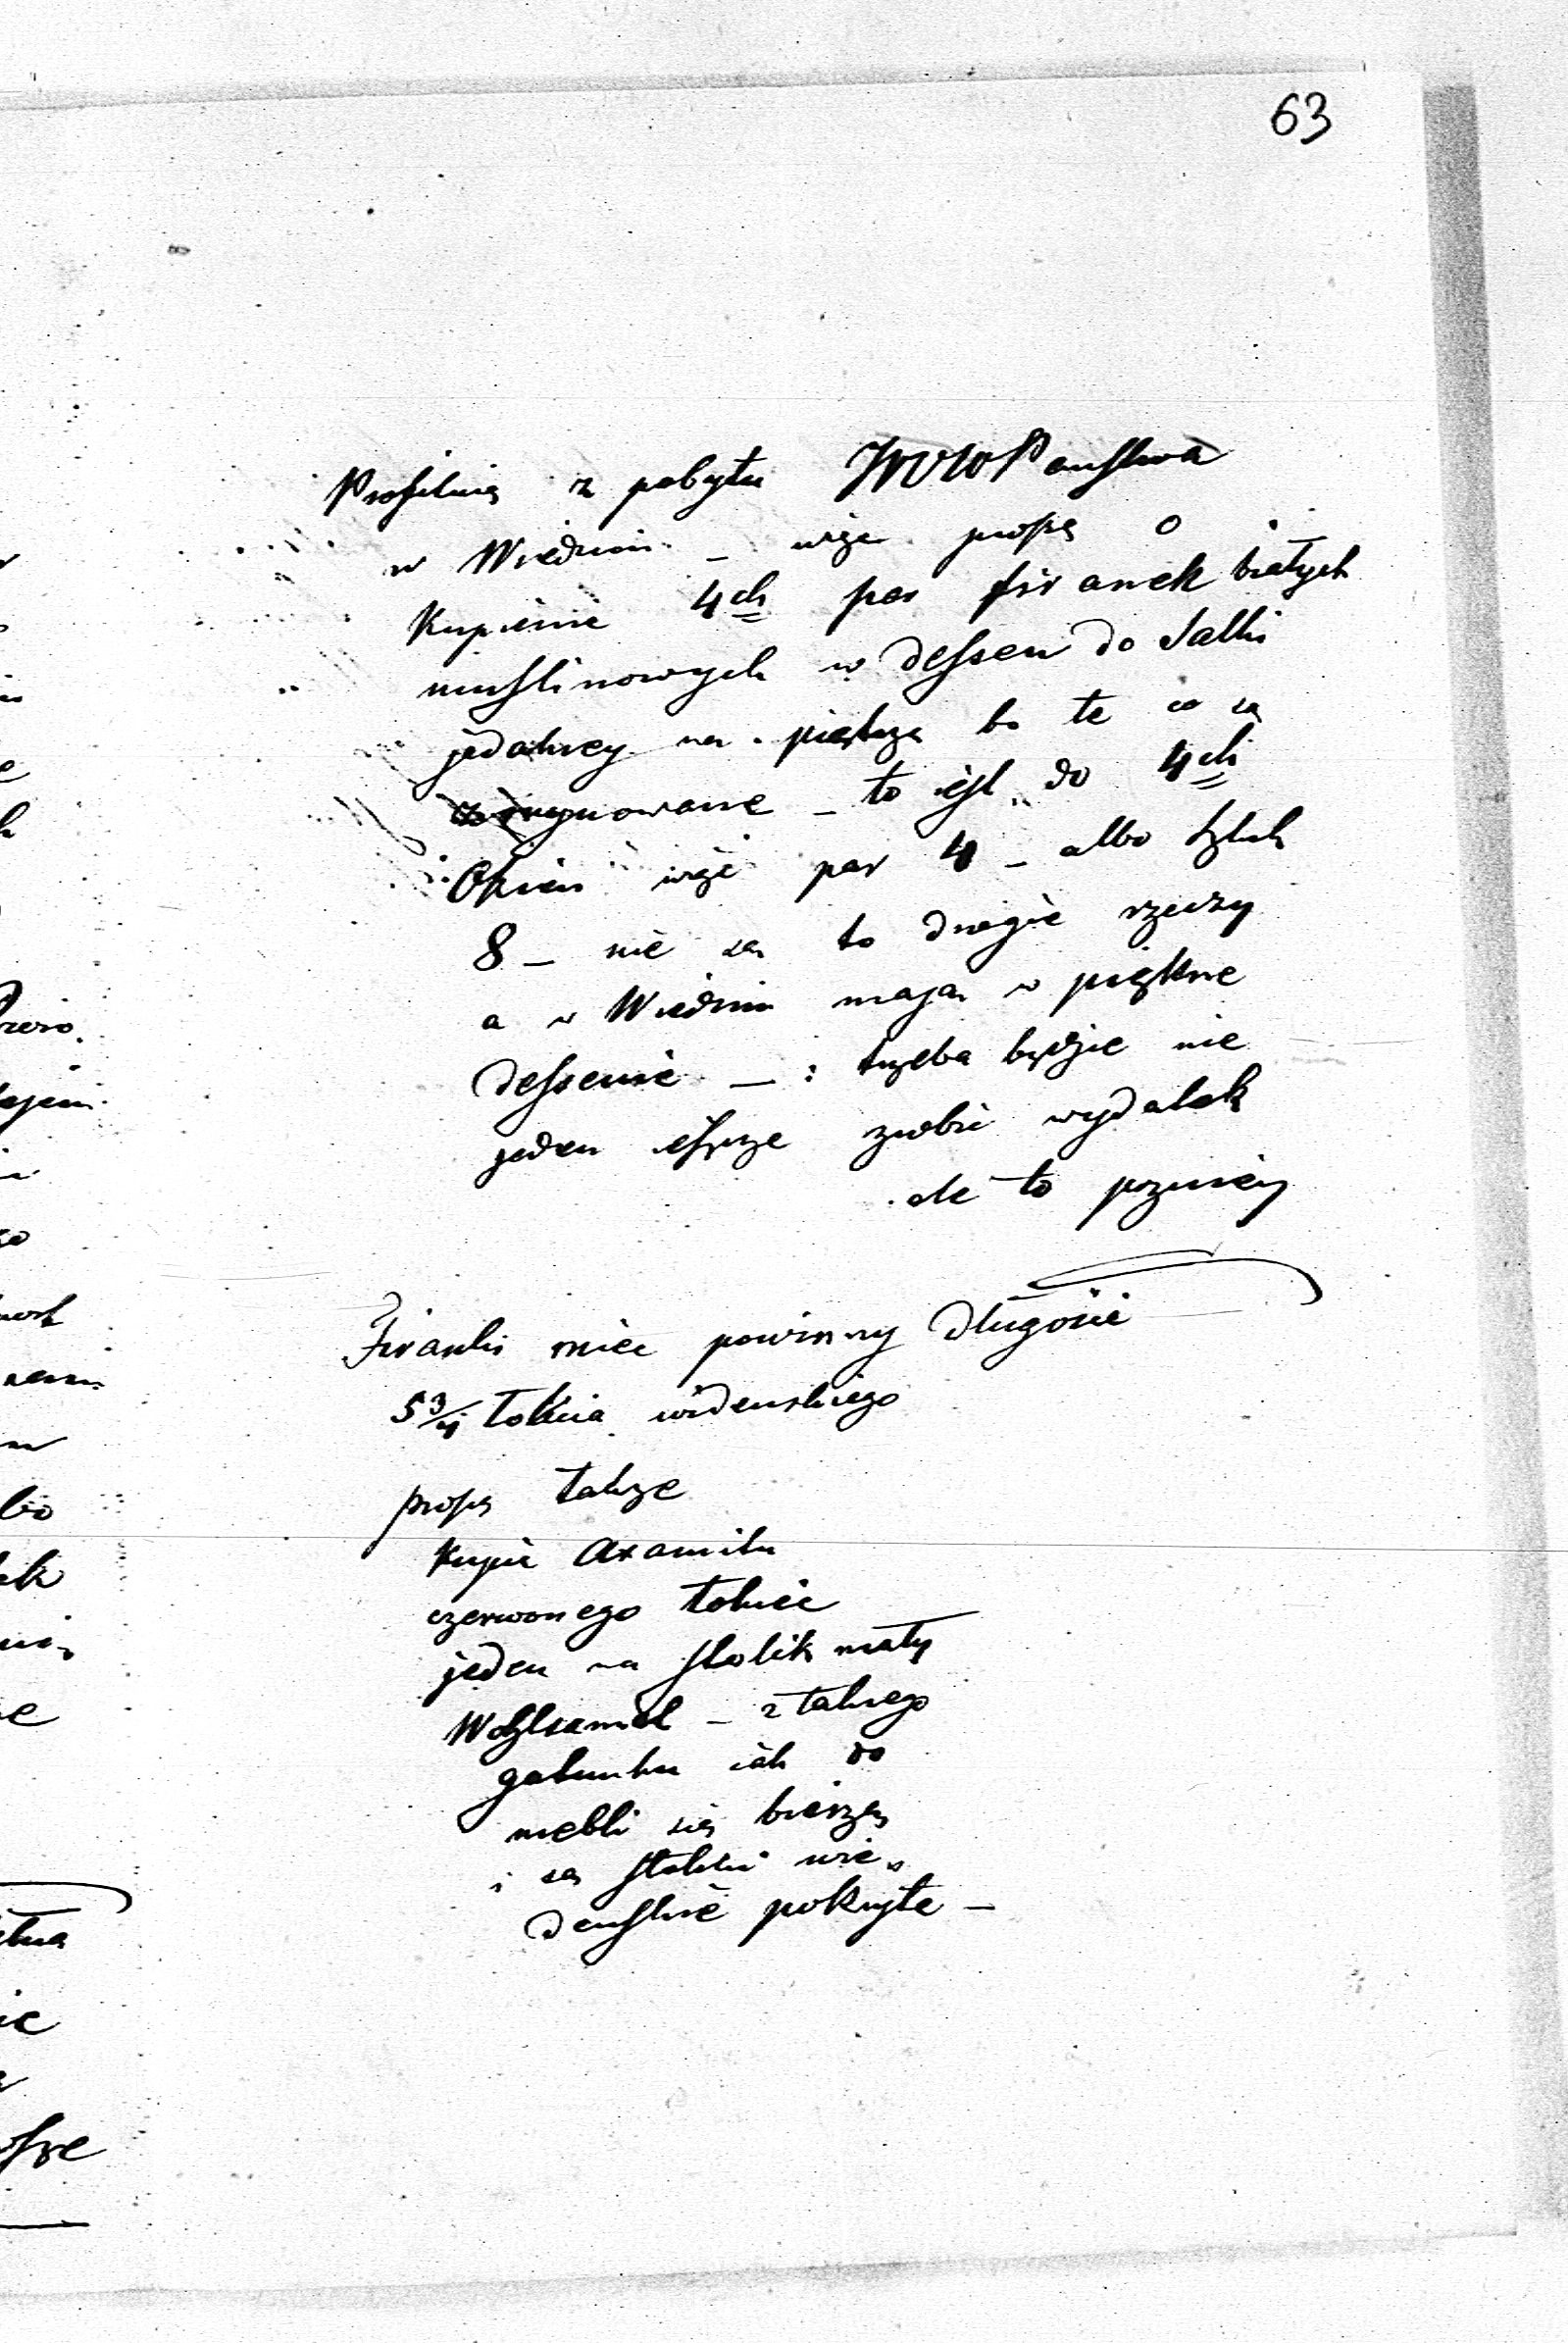 63
Profituię z pobytu JWW Państwa
w Wiedniu – więc proszę o
Kupienie 4ch par firanek białych
muslinowych w dessen do Salki
jedalney na piętrze bo te co są
zrujnowane – to iest do 4ch
Okien więc par 4 – albo sztuk
8 – nie są to drogie rzeczy
a w Wiedniu mają w piękne
dessenie – : trzeba będzie nie
jeden ieszcze zrobić wydatek
ale to pozniey
Firanki miec powinny długosci
5 3/4 łokcia widenskiego
proszę także
kupić Axamitu
czerwonego łokieć
jeden na stolik mały
– z takiego
gatunku iak do
mebli się bierze
i są stołki wie„
denskie pokryte –